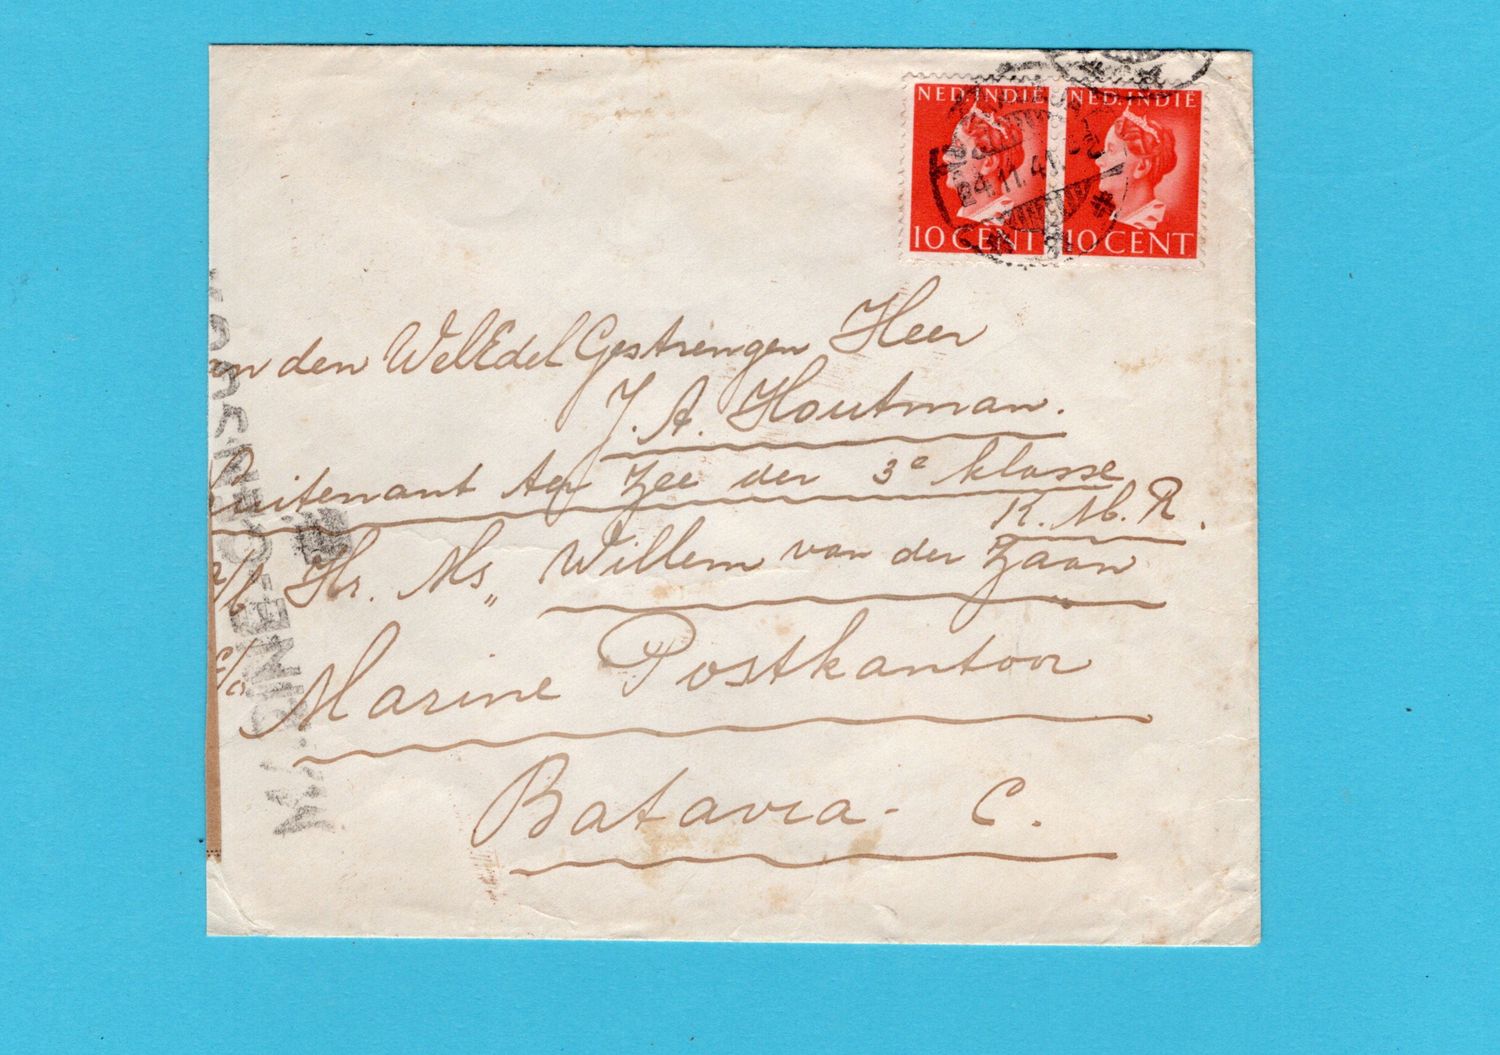 NED. INDIE NED. INDIE
24.11.41.
10 CENT 10 CENT
an den WelEdelGestrengen Heer
J. A. Houtman.
Luitenant ter Zee der 3e klasse
K. M. R.
a/b Hr. Ms „ Willem van der Zaan
c/o
Marine Postkantoor
Batavia - C.